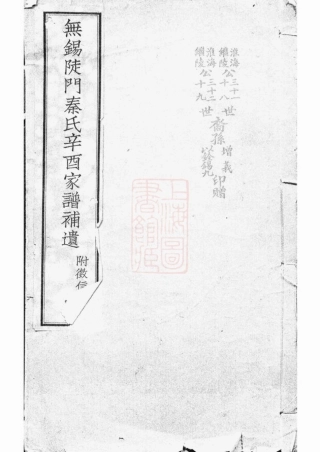 淮海三十一
錫陵公十八
世
淮海公三十二
錫陵公十九
世
裔孫
增義
印贈
上海圖書館藏
無錫陡門秦氏辛酉家譜補遺
附徵